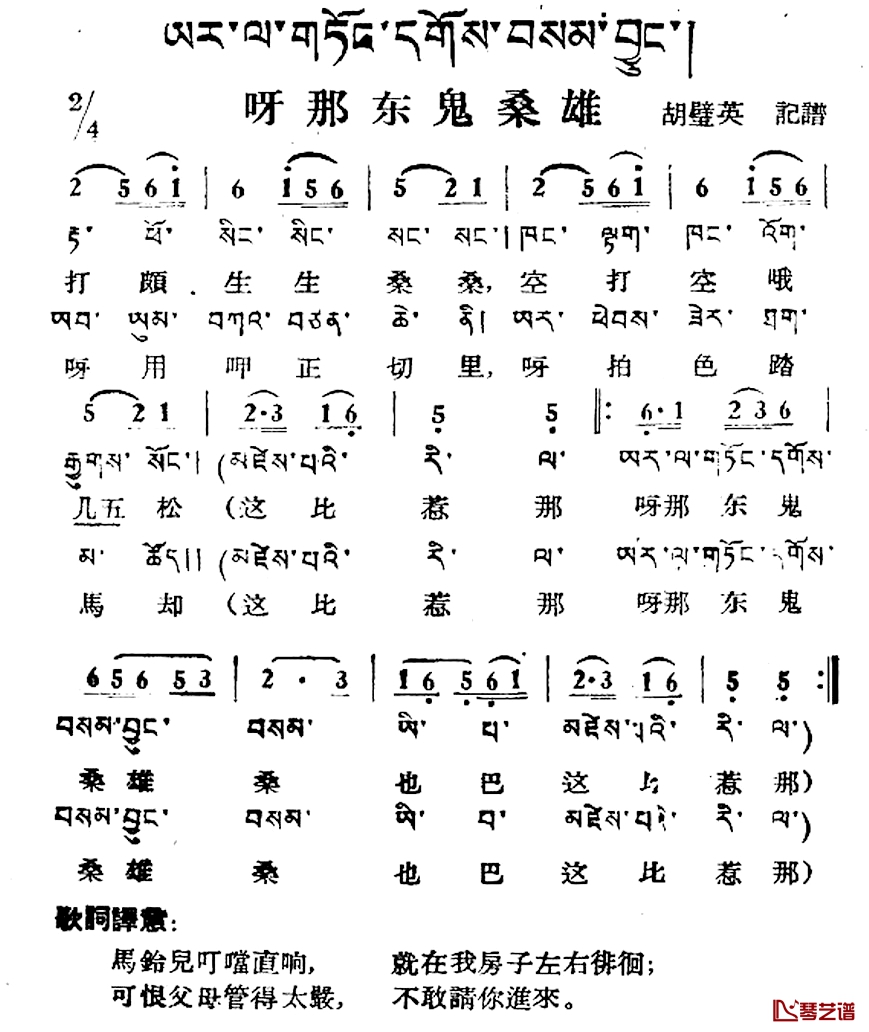 ཨར་ལ་གཏོང་དགོས་བསམ་བྱུང་།
2/4 呀那东鬼桑雄 胡璧英 記譜
2 5 6 i | 6 i 5 6 | 5 2 1 | 2 5 6 i | 6 i 5 6 |
རྟ་ ཕོ་ སིང་ སིང་ སང་ སང་། ཁང་ ལྟག་ ཁང་ འོག་
打 頗 生 生 桑 桑, 空 打 空 哦
ཨབ་ ཡུམ་ བཀའ་ བཙན་ ཆེ་ ནི། ཨར་ ཕེབས་ ཟེར་ ཐག་
呀 用 呷 正 切 里, 呀 拍 色 踏
5 2 1 | 2·3 1 6 | 5 5 ‖: 6·1 2 3 6 |
རྒྱུགས་ སོང་། (མཛེས་པའི་ རི་ ལ་ ཨར་ལ་གཏོང་དགོས་
几五 松 (这 比 惹 那 呀那 东 鬼
མ་ ཚོད།། (མཛེས་པའི་ རི་ ལ་ ཨར་ལ་གཏོང་དགོས་
馬 却 (这 比 惹 那 呀那 东 鬼
6 5 6 5 3 | 2 · 3 | 1 6 5 6 1 | 2·3 1 6 | 5 5 :‖
བསམ་བྱུང་ བསམ་ ཨི་ པ་ མཛེས་པའི་ རི་ ལ་)
桑 雄 桑 也 巴 这 比 惹 那)
བསམ་བྱུང་ བསམ་ ཨི་ པ་ མཛེས་པའི་ རི་ ལ་)
桑 雄 桑 也 巴 这 比 惹 那)
歌詞譯意:
馬鈴兒叮噹直响, 就在我房子左右徘徊;
可恨父母管得太嚴, 不敢請你進來。
琴艺谱